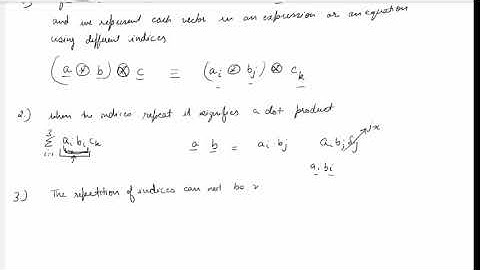 and we represent each vector in an expression or an equation
using different indices
(a ⊗ b) ⊗ c ≡ (a_i ⊗ b_j) ⊗ c_k
2.) when the indices repeat it signifies a dot product
3 Σ i=1 a_i b_i c_k a b = a_i b_j a_i b_j
a_i b_i
3.) The repetition of indices can not be